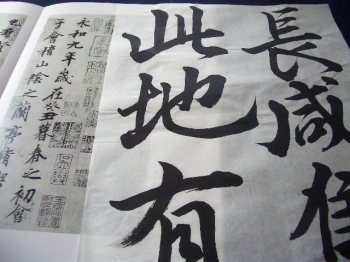 長咸
此地有
永和九年歲在癸丑暮春之初會
于會稽山陰之蘭亭脩